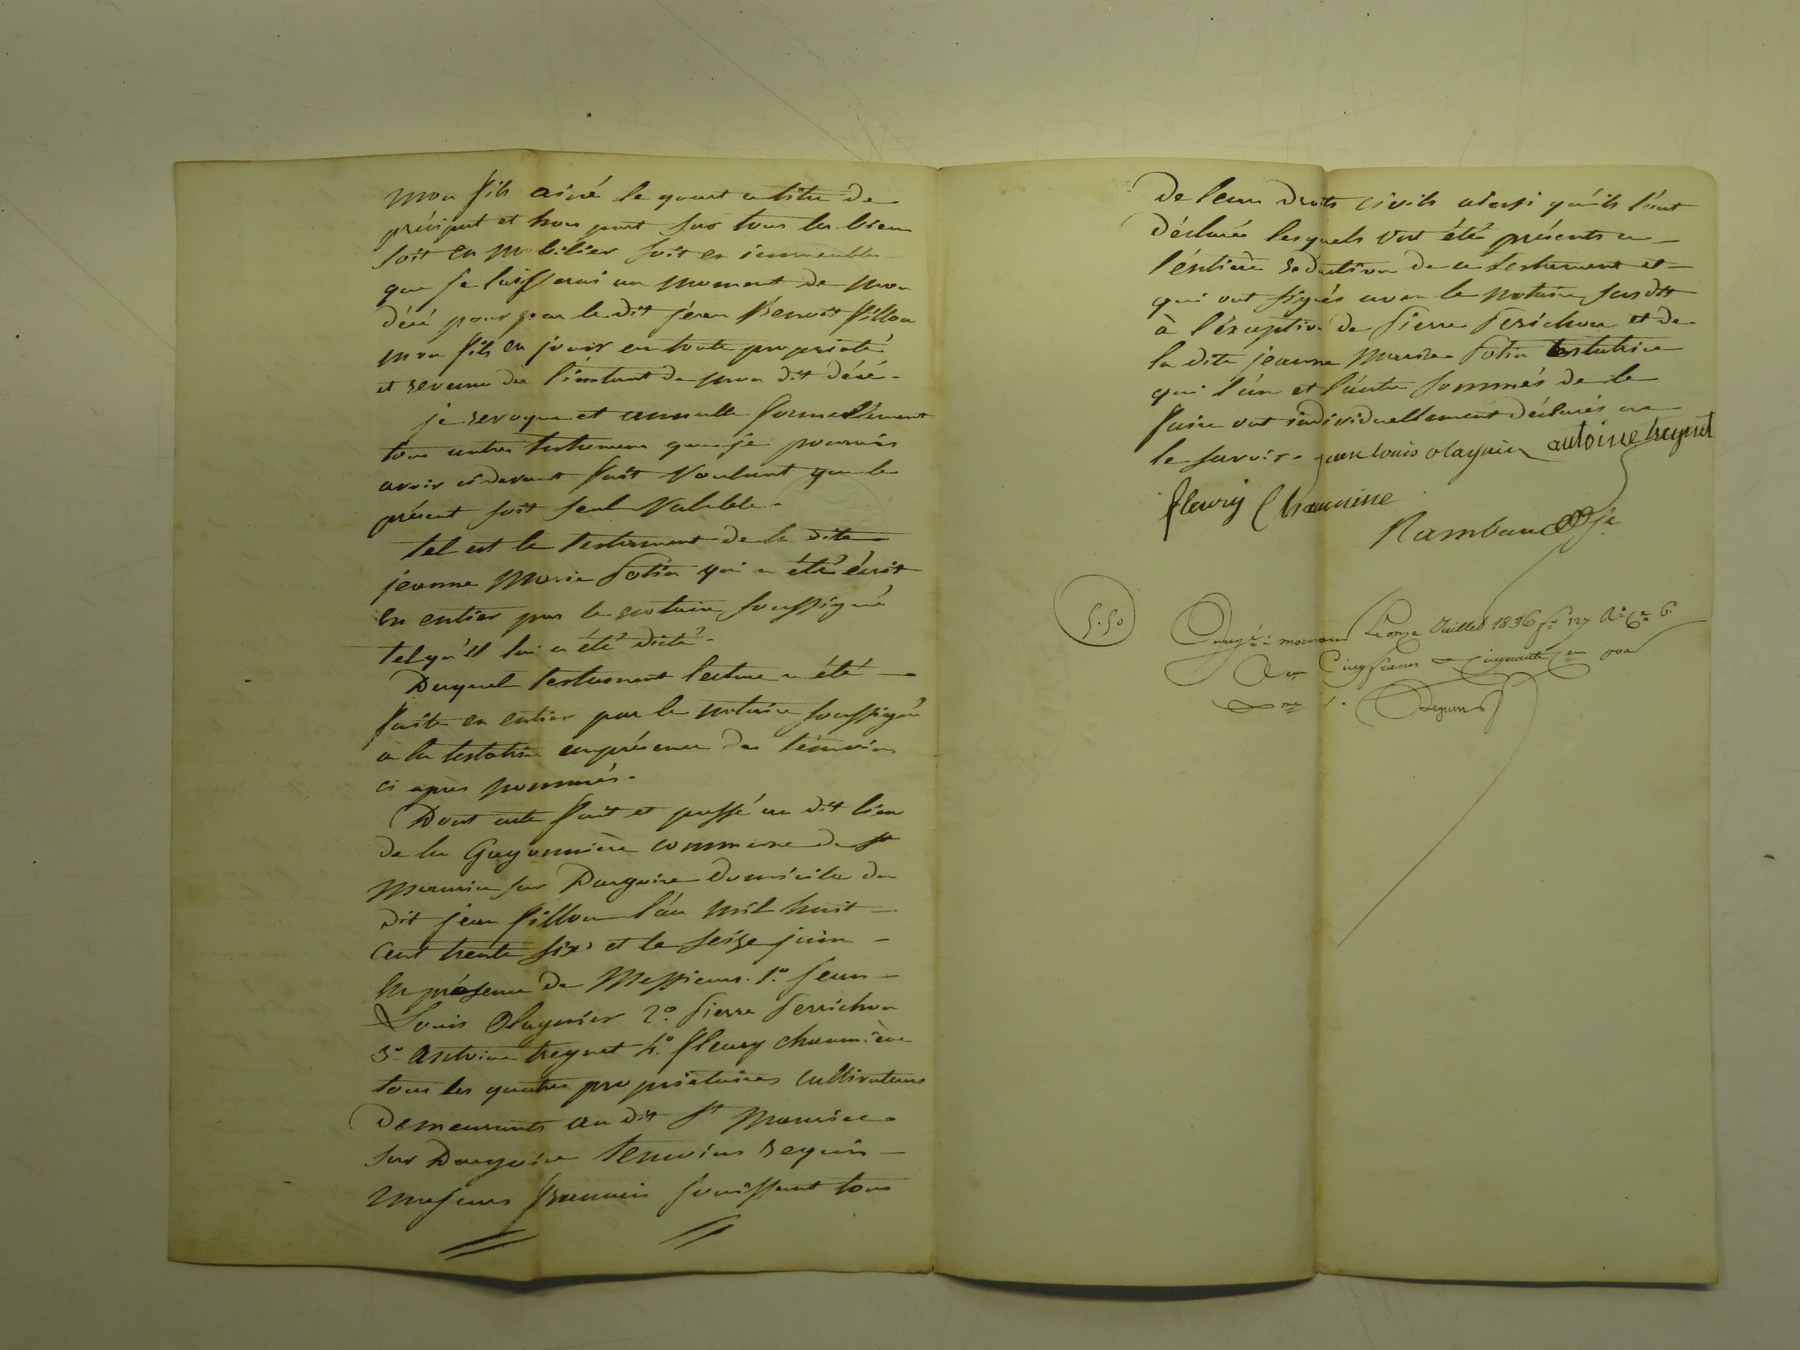 mon fils ainé le quart a titre de
préciput et hors part sur tous les biens
soit en mobilier soit en immeubles
que je laisserai au moment de mon
décé pour par le dit jean Benoit fillon
mon fils en jouir en toute propriété
et revenu des l'instant de mon dit décé.
je revoque et annulle formellement
tous autres testamens que je pourrais
avoir ci devant fait voulant que le
présent soit seul valable.
tel est le testament de la dite
jeanne Marie Potin qui a été écrit
en entier par le notaire soussigné
tel qu'il lui a été dicté.
Duquel testament lecture a été
faite en entier par le notaire soussigné
a la testatrice en présence des témoins
ci après nommés.
Dont acte fait et passé au dit lieu
de la Guyonnière commune de St
Maurice sur Dargoire domicile du
dit jean fillon l'an mil huit
cent trente six et le seize juin
en présence de Messieurs. 1º Jean
Louis Olagnier 2º Pierre Perrichon
3º Antoine treynet 4º fleury chaumière
tous les quatres propriétaires cultivateurs
demeurants au dit St Maurice
sur Dargoire temoins requis
majeurs francais jouissant tous
de leurs droits civils ainsi qu'ils l'ont
déclaré lesquels ont été présents a
l'entière rédaction de ce testament et
qui ont signés avec le notaire susdit
à l'éxception de Pierre Perichon et de
la dite jeanne Marie Potin testatrice
qui l'un et l'autre sommés de le
faire ont individuellement déclarés ne
le savoir. jean louis olagnier antoine treynet
fleury Chaumine
Rambaud
5.50
Enregé a mornant Le onze Juillet 1836 fo 127 Ro Ce 6.
Reçu Cinq francs Cinquante Cen pour
Dme